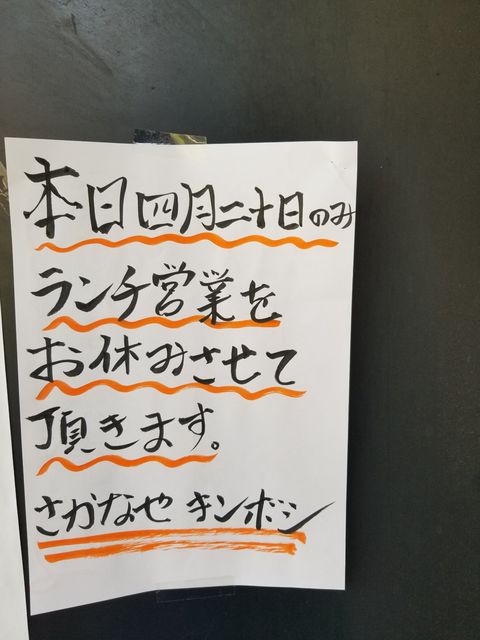 本日四月二十日のみ
ランチ営業を
お休みさせて
頂きます。
さかなや キンボシ